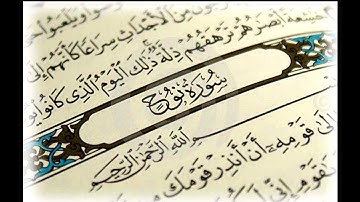 مِنَ ٱلْأَجْدَاثِ سِرَاعًا كَأَنَّهُمْ إِلَىٰ
خَٰشِعَةً أَبْصَٰرُهُمْ تَرْهَقُهُمْ ذِلَّةٌ ذَٰلِكَ ٱلْيَوْمُ ٱلَّذِى كَانُوا۟
سُورَةُ نُوحٍ
بِسْمِ ٱللَّهِ ٱلرَّحْمَٰنِ ٱلرَّحِيمِ
إِلَىٰ قَوْمِهِۦٓ أَنْ أَنذِرْ قَوْمَكَ
يَٰقَوْمِ إِنِّى